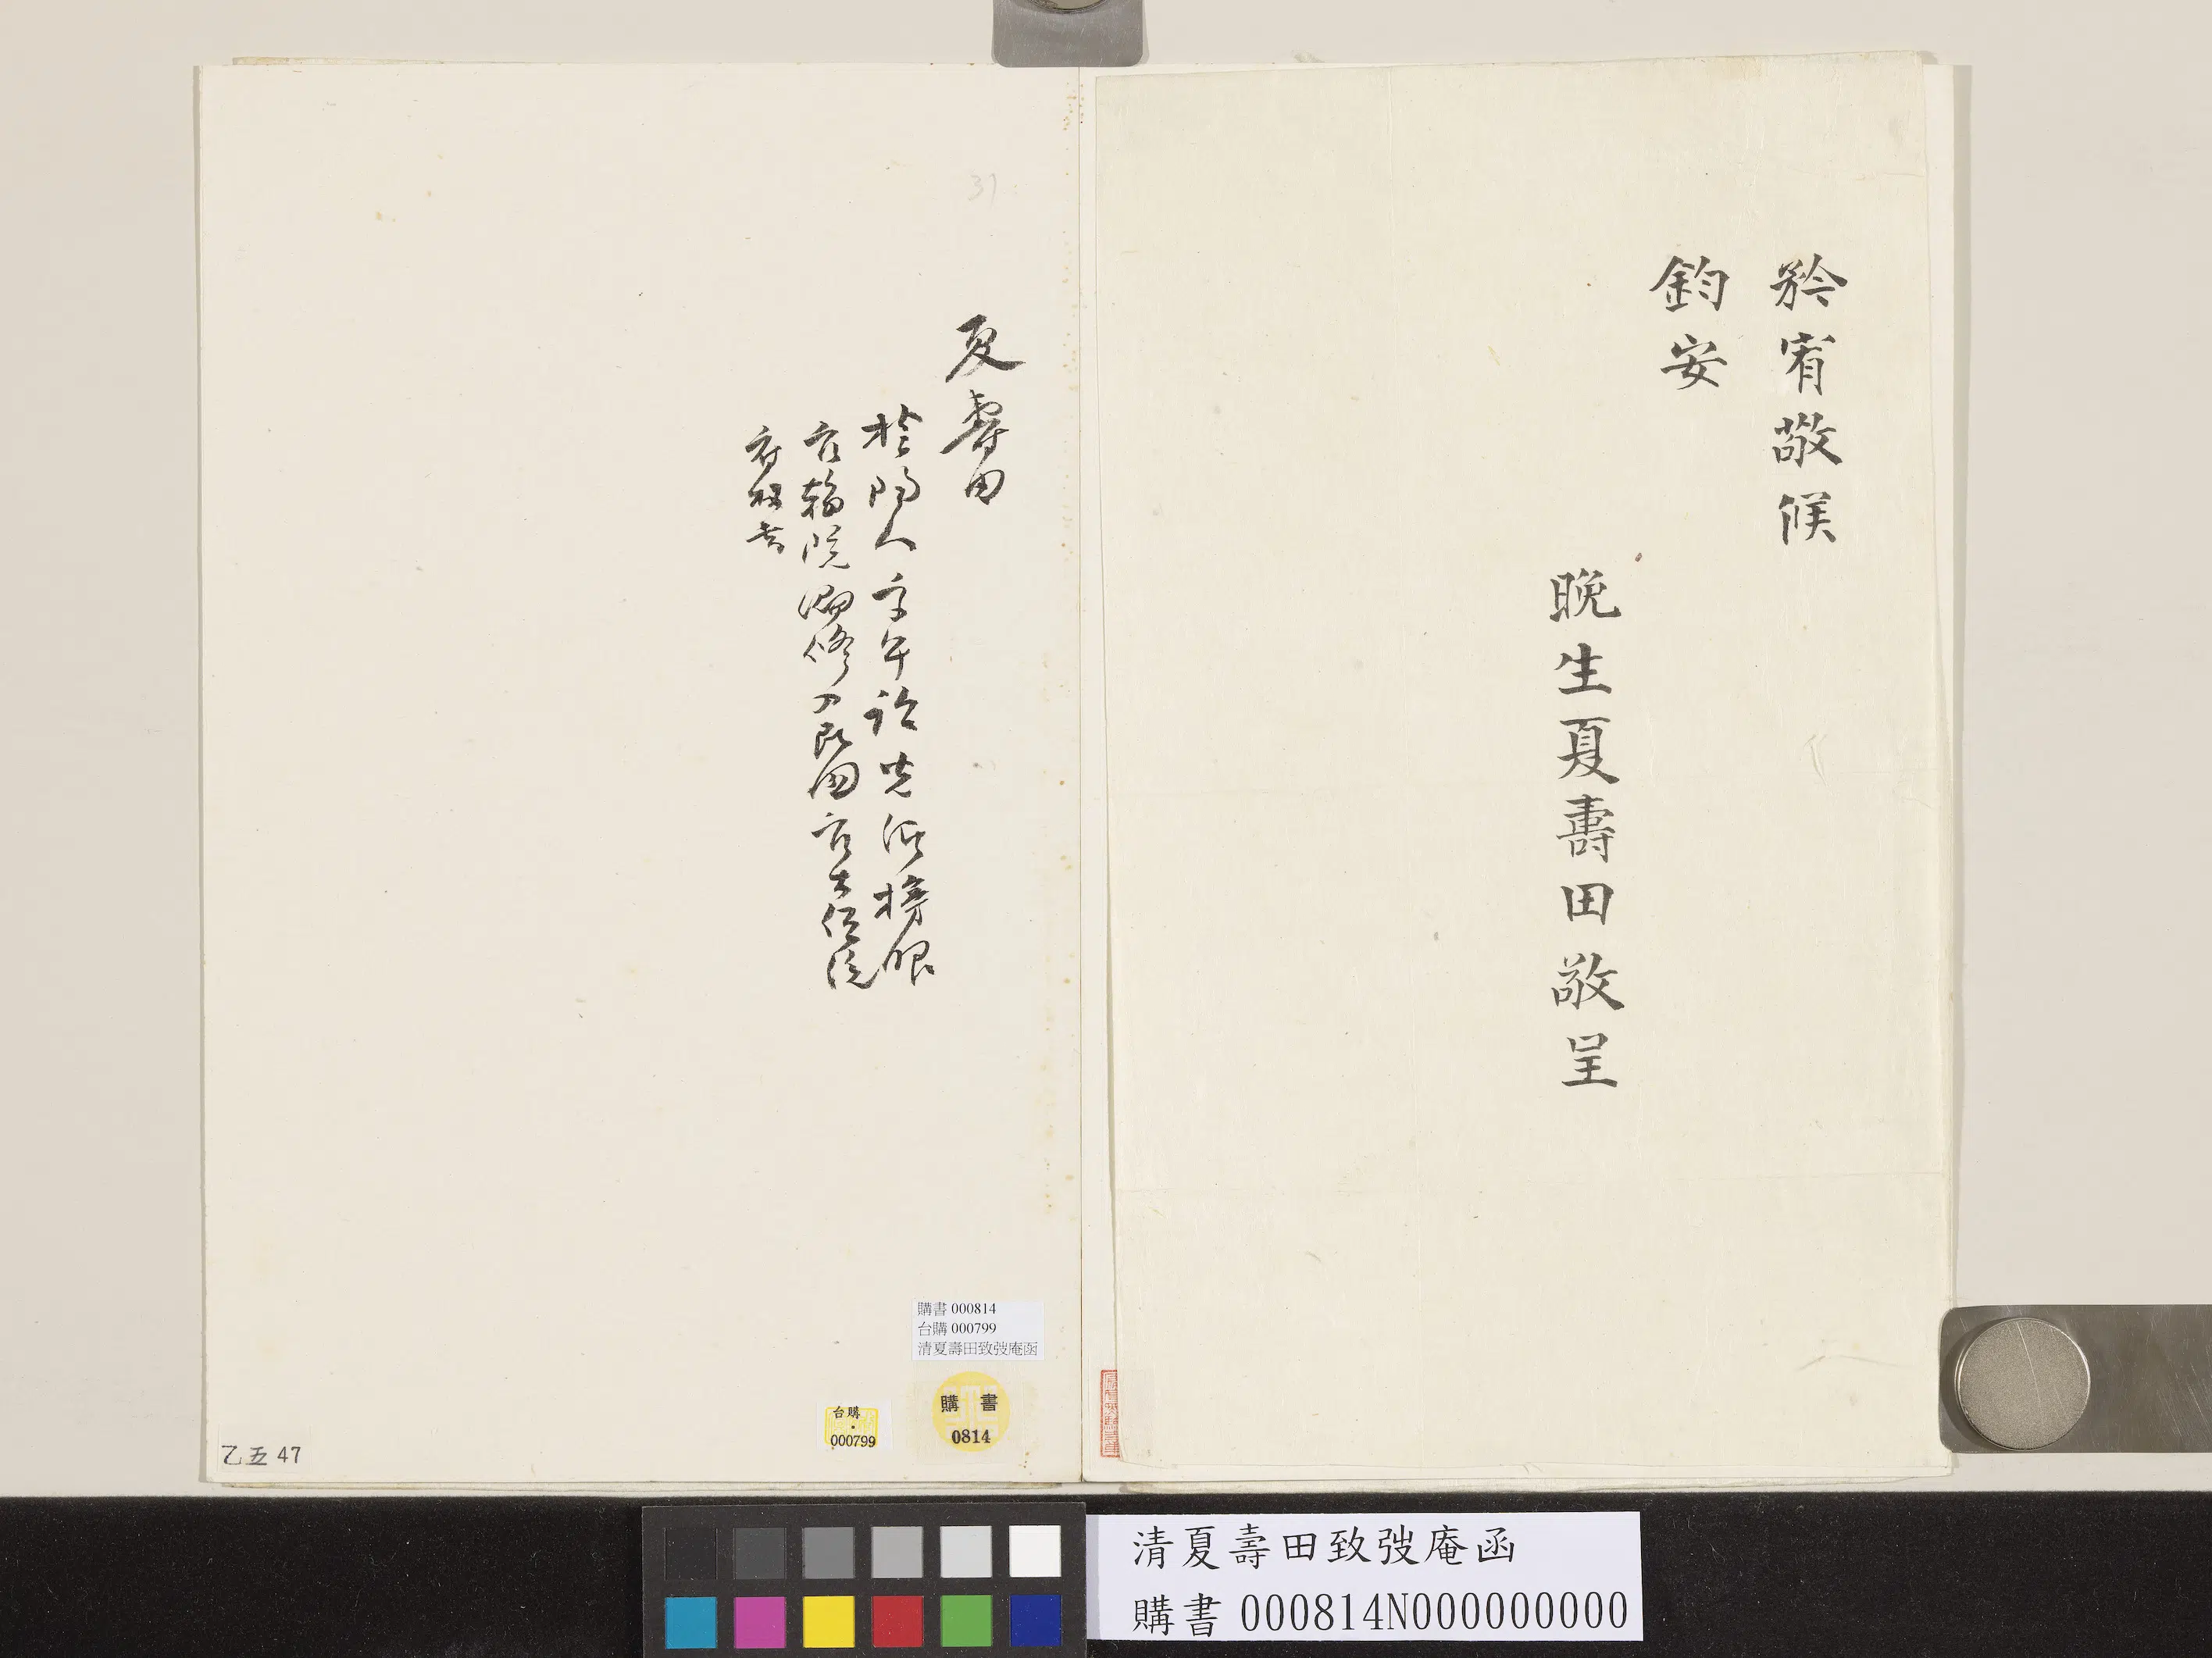 矜宥敬候
鈞安
晚生夏壽田敬呈
夏壽田
桂陽人字午詒光派榜眼
官翰院編修入民國官大侭院
府秘書
31
購書 000814
台購 000799
清夏壽田致弢庵函
購書
0814
台購
000799
乙五 47
清夏壽田致弢庵函
購書 000814N000000000